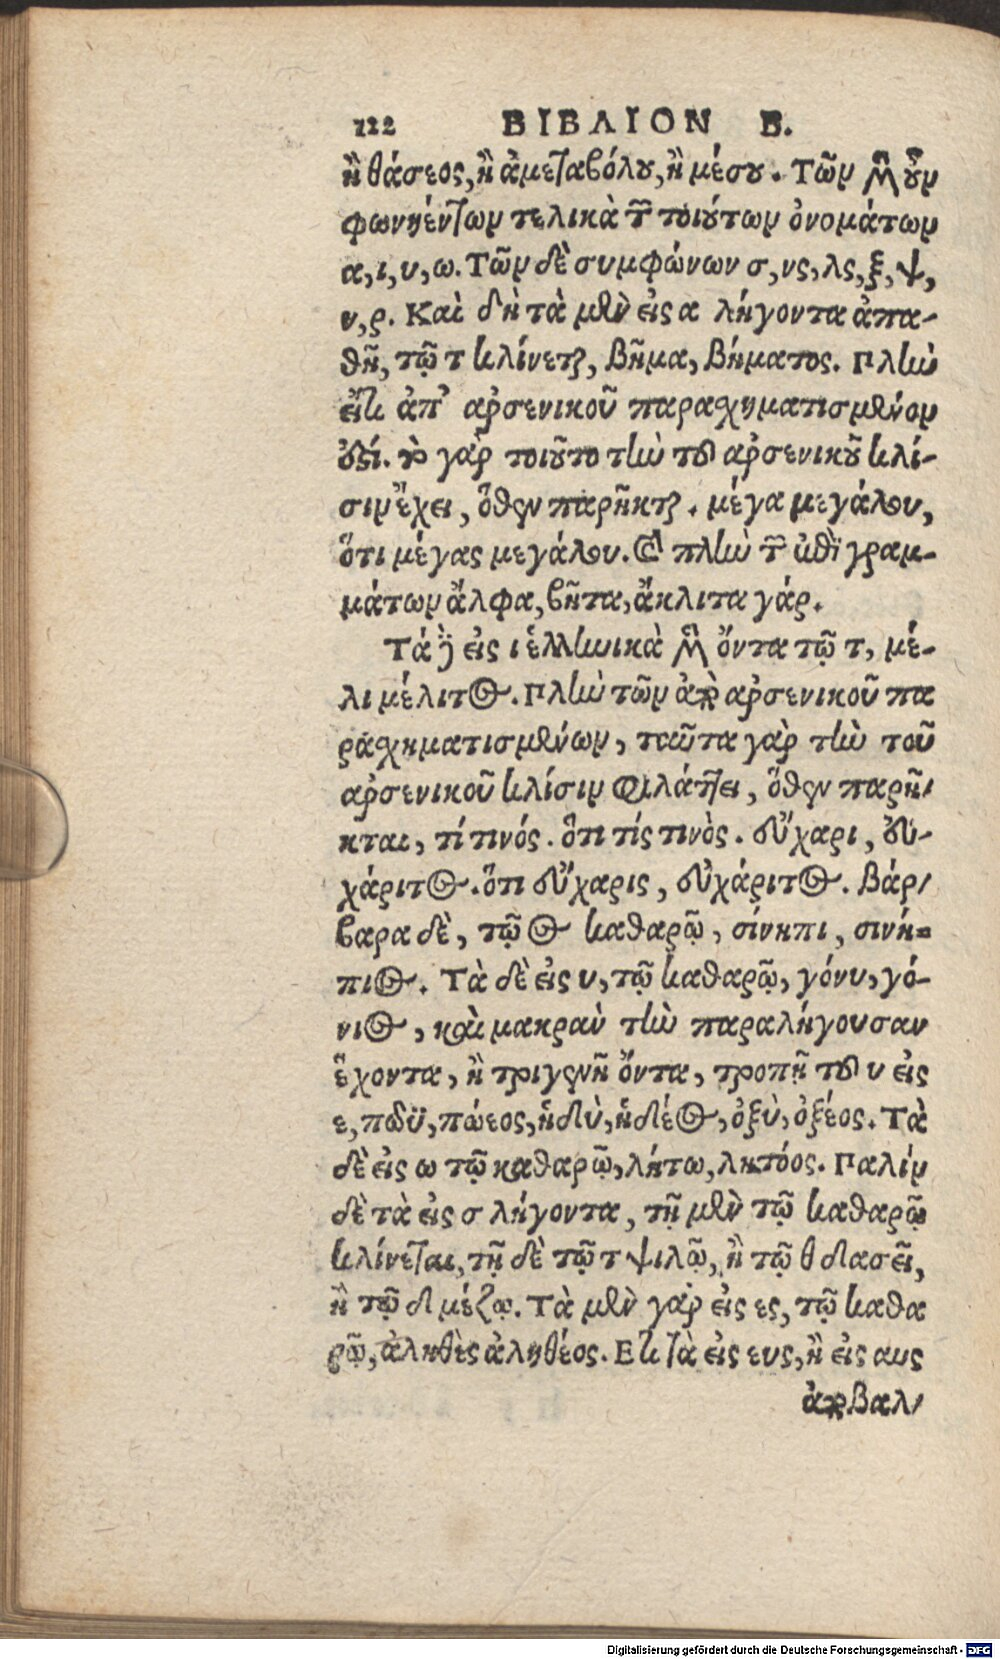 122 ΒΙΒΛΙΟΝ Β.
ἢ θάσεος, ἢ ἀμεταβόλου, ἢ μέσου. Τῶν μὲν οὖν
φωνηέντων τελικὰ τῶν τοιούτων ὀνομάτων
α, ι, υ, ω. Τῶν δὲ συμφώνων σ, νς, λς, ξ, ψ,
ν, ρ. Καὶ δὴ τὰ μὲν εἰς α λήγοντα ἀπα-
θῆ, τῷ τ κλίνεται, βῆμα, βήματος. Πλὴν
εἴτι ἀπ' ἀρσενικοῦ παρασχηματισμένον
ὅξί. τὸ γὰρ τοιοῦτο τὴν τοῦ ἀρσενικοῦ κλί-
σιν ἔχει, ὅθεν παρῆκται. μέγα μεγάλου,
ὅτι μέγας μεγάλου. Καὶ πλὴν τῶν ἐπὶ γραμ-
μάτων ἄλφα, βῆτα, ἄκλιτα γάρ.
Τὰ δὲ εἰς ι ἑλληνικὰ μὲν ὄντα τῷ τ, μέ-
λι μέλιτος. Πλὴν τῶν ἀπὸ ἀρσενικοῦ πα
ραχηματισμένων, ταῦτα γὰρ τὴν τοῦ
ἀρσενικοῦ κλίσιν φυλάττει, ὅθεν παρῆ-
κται, τί τινός. ὅτι τίς τινὸς. εὔχαρι, εὐ-
χάριτος. ὅτι εὔχαρις, εὐχάριτος. Βάρ-
βαρα δὲ, τῷ ος καθαρῷ, σίνηπι, σινή-
πιος. Τὰ δὲ εἰς υ, τῷ καθαρῷ, γόνυ, γό-
νιος, καὶ μακρὰν τὴν παραλήγουσαν
ἔχοντα, ἢ τριγενῆ ὄντα, τροπῇ τοῦ υ εἰς
ε, πῶϋ, πώεος, ἡδὺ, ἡδέος, ὀξὺ, ὀξέος. Τὰ
δὲ εἰς ω τῷ καθαρῷ, λήτω, λητόος. Παλὶν
δὲ τὰ εἰς σ λήγοντα, τῇ μὲν τῷ καθαρῷ
κλίνεται, τῇ δὲ τῷ τ ψιλῷ, ἢ τῷ θ δασεῖ,
ἢ τῷ δ μέζῳ. Τὰ μὲν γὰρ εἰς ες, τῷ καθα
ρῷ, ἀληθὲς ἀληθέος. Ετι τὰ εἰς ευς, ἢ εἰς αυς
βαλ-